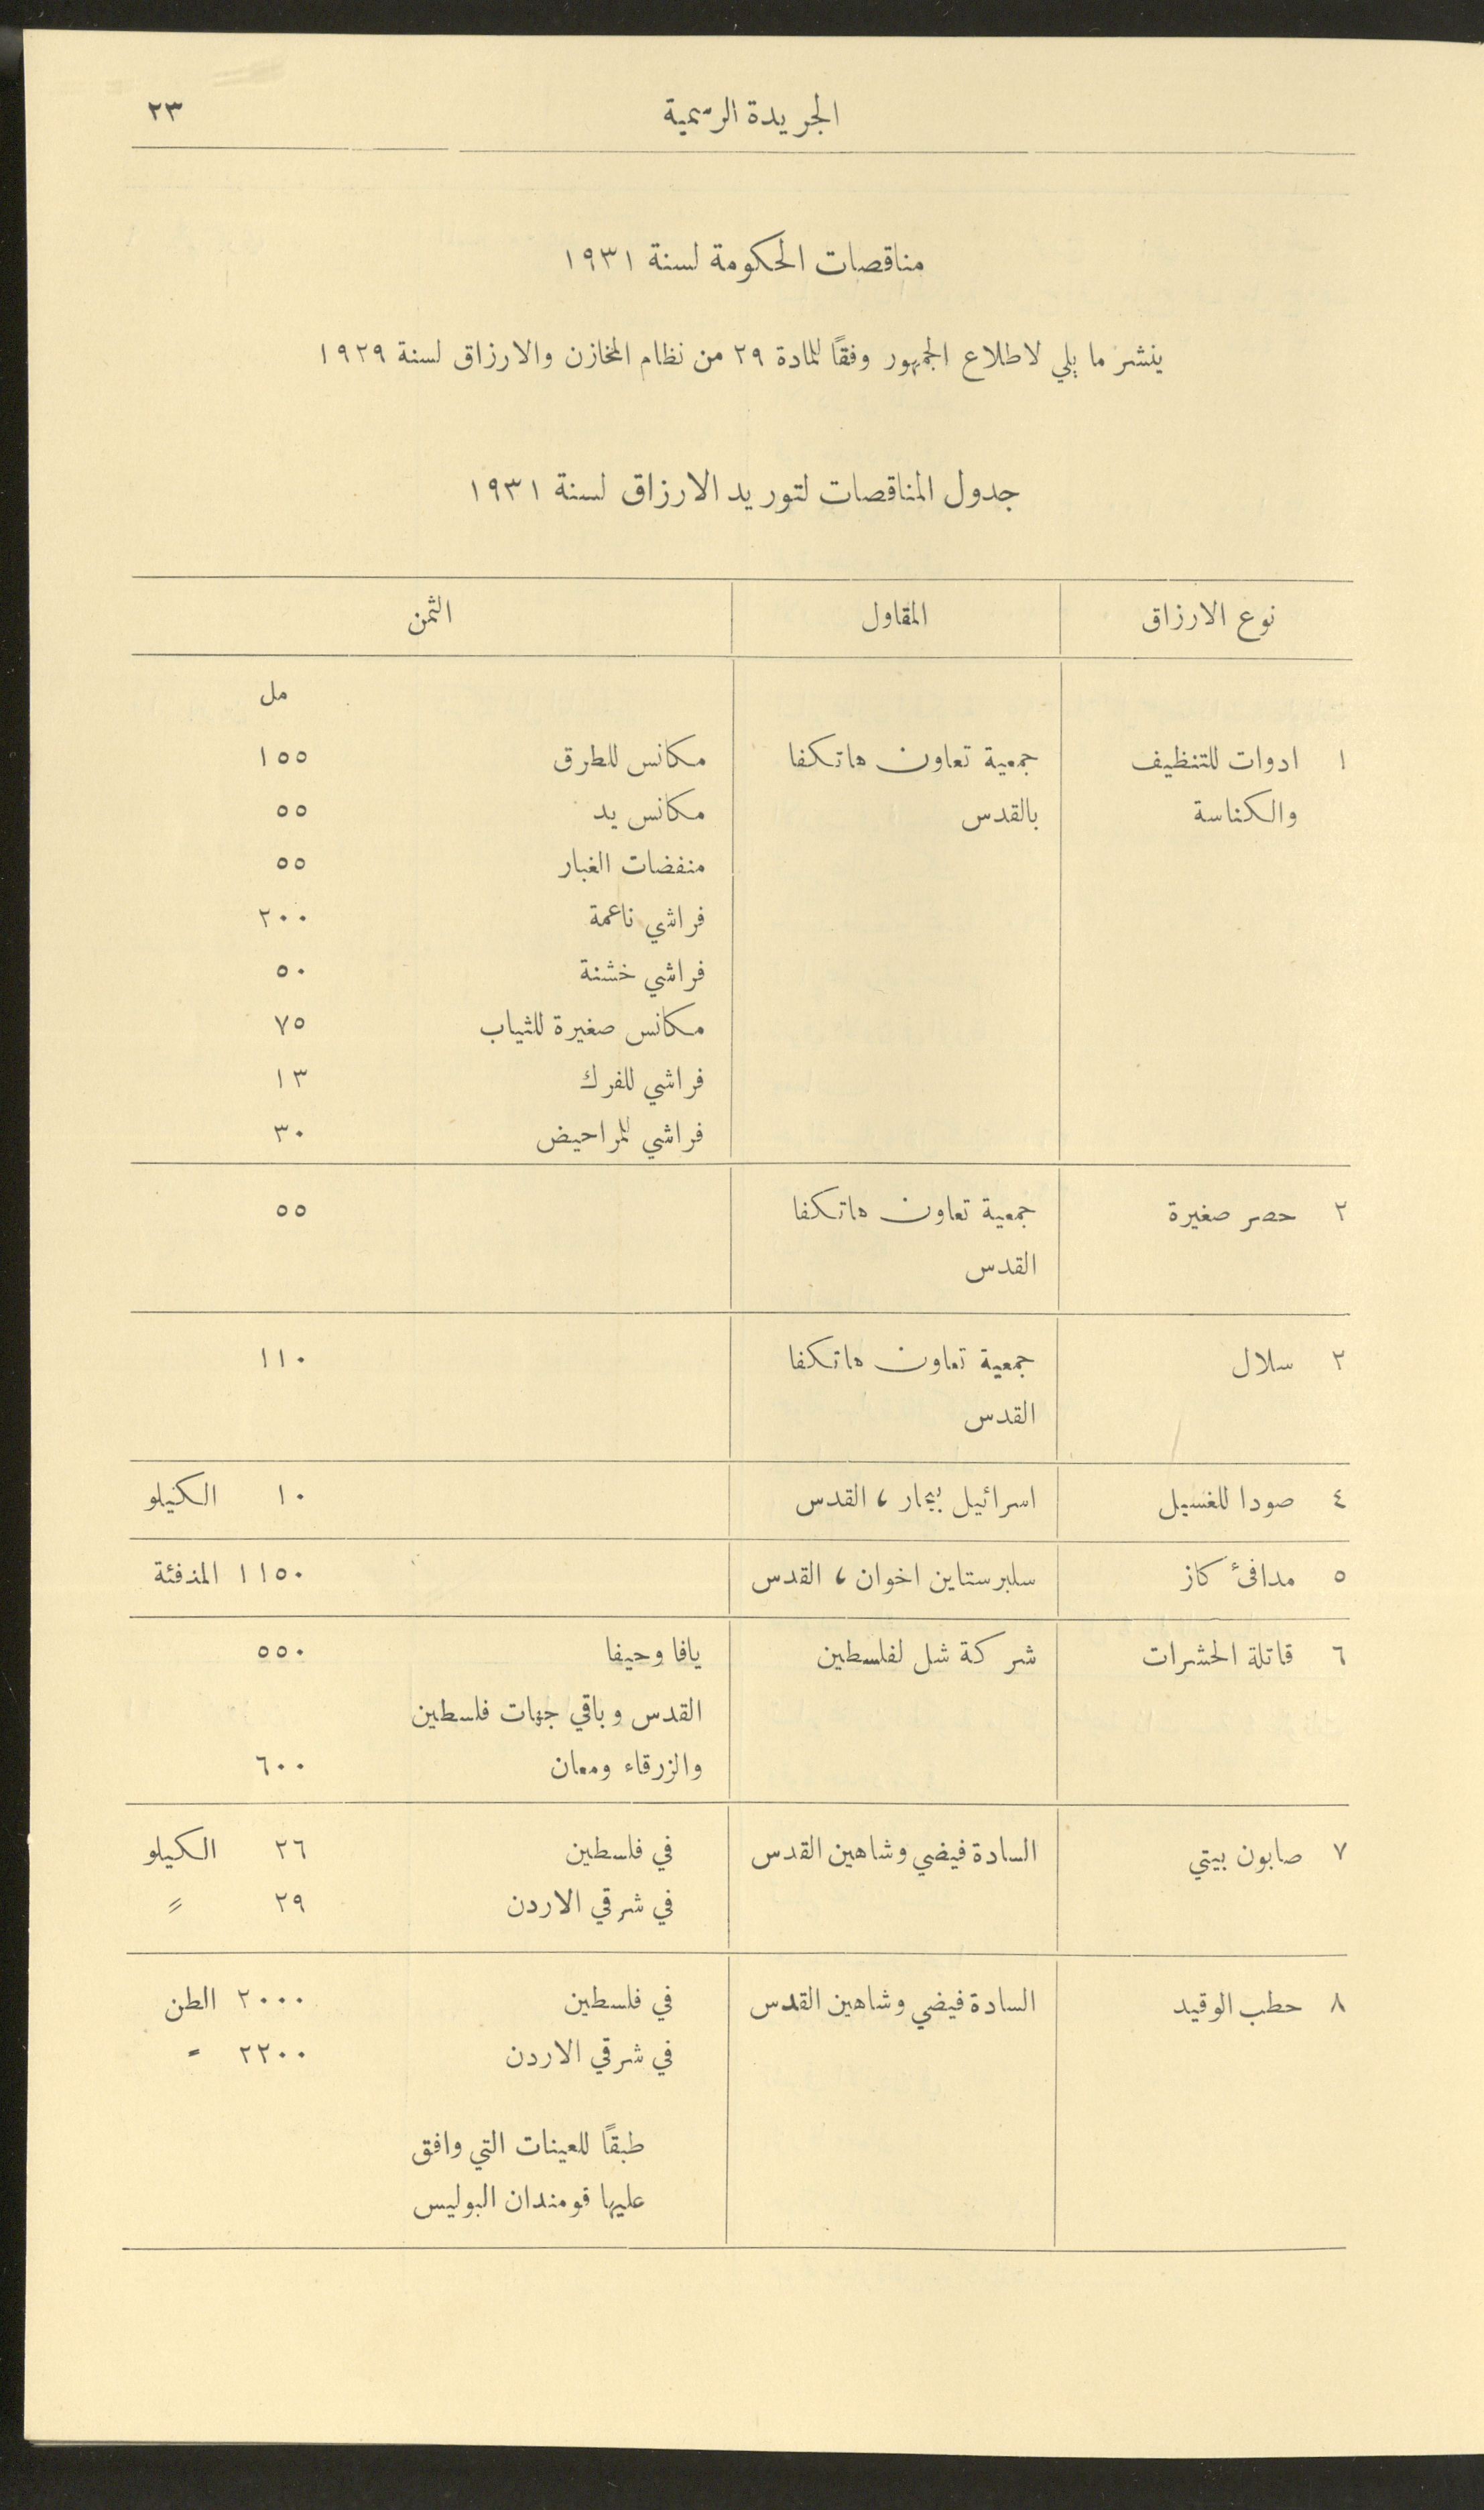 الجريدة الرسمية ٢٣
مناقصات الحكومة لسنة ١٩٣١
ينشر ما يلي لاطلاع الجمهور وفقًا للمادة ٢٩ من نظام المخازن والارزاق لسنة ١٩٢٩
جدول المناقصات لتوريد الارزاق لسنة ١٩٣١
نوع الارزاق المقاول الثمن
مل
١ ادوات للتنظيف جمعية تعاون هاتكفا مكانس للطرق ١٥٥
والكناسة بالقدس مكانس يد ٥٥
منفضات الغبار ٥٥
فراشي ناعمة ٢٠٠
فراشي خشنة ٥٠
مكانس صغيرة للثياب ٧٥
فراشي للفرك ١٣
فراشي للمراحيض ٣٠
٢ حصر صغيرة جمعية تعاون هاتكفا ٥٥
القدس
٢ سلال جمعية تعاون هاتكفا ١١٠
القدس
٤ صودا للغسيل اسرائيل بيجار ، القدس ١٠ الكيلو
٥ مدافئ كاز سلبرستاين اخوان ، القدس ١١٥٠ المدفئة
٦ قاتلة الحشرات شركة شل لفلسطين يافا وحيفا ٥٥٠
القدس وباقي جهات فلسطين
والزرقاء ومعان ٦٠٠
٧ صابون بيتي السادة فيضي وشاهين القدس في فلسطين ٢٦ الكيلو
في شرقي الاردن ٢٩ =
٨ حطب الوقيد السادة فيضي وشاهين القدس في فلسطين ٢٠٠٠ الطن
في شرقي الاردن ٢٢٠٠ =
طبقًا للعينات التي وافق
عليها قومندان البوليس